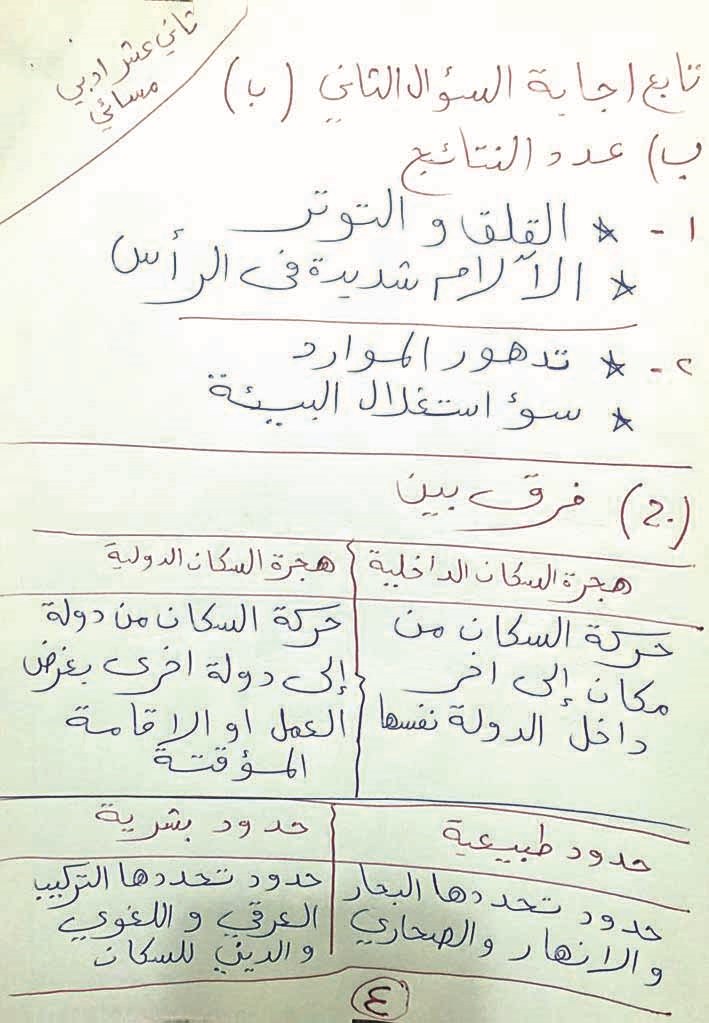 ثاني عشر ادبي
مسائي
تابع اجابة السؤال الثاني (ب)
ب) عدد النتائج
١- * القلق و التوتر
* الآلام شديدة في الرأس
٢- * تدهور الموارد
* سوؤ استغلال البيئة
(2.) فرق بين
هجرة السكان الداخلية
هجرة السكان الدولية
حركة السكان من
مكان إلى اخر
داخل الدولة نفسها
حركة السكان من دولة
إلى دولة اخرى بغرض
العمل او الاقامة
المؤقتة
حدود طبيعية
حدود بشرية
حدود تحددها البحار
والانهار والصحاري
حدود تحددها التركيب
العرقي و اللغوي
والديني للسكان
٤